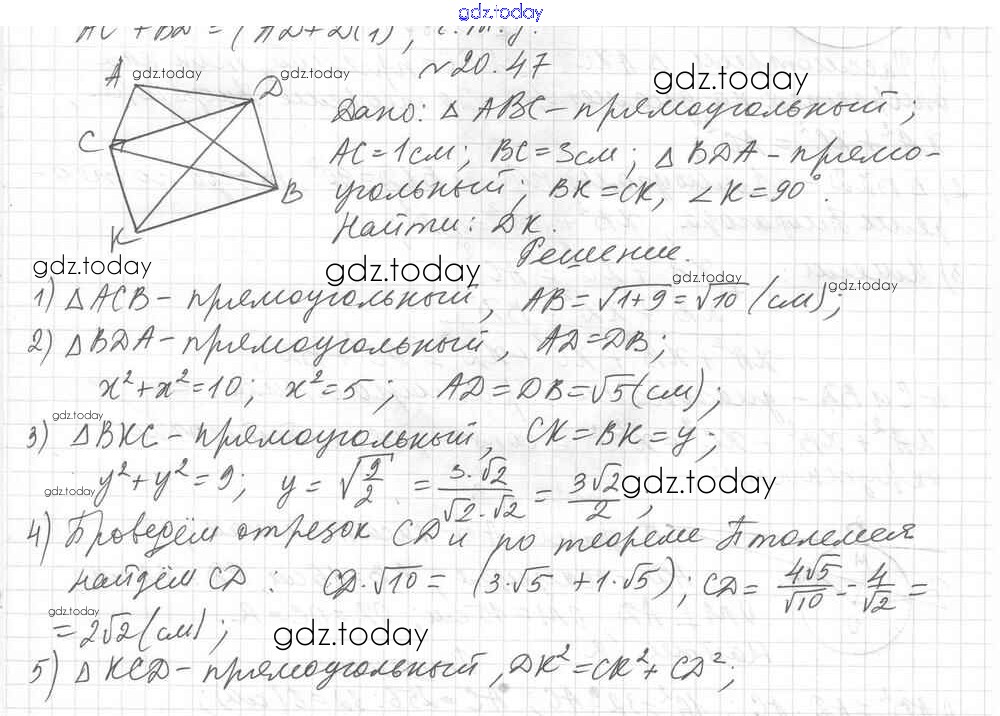 gdz.today
AC + BD = (AD + DC), ч.т.д.
№20.47
A gdz.today D gdz.today gdz.today
C B K
Дано: △ ABC - прямоугольный;
AC = 1 см; BC = 3 см; △ BDA - прямо-
угольный; BK = CK, ∠K = 90°.
Найти: DK.
Решение.
gdz.today gdz.today gdz.today gdz.today
1) △ ACB - прямоугольный, AB = √1+9 = √10 (см);
2) △ BDA - прямоугольный, AD = DB;
x² + x² = 10; x² = 5; AD = DB = √5 (см);
gdz.today
3) △ BKC - прямоугольный, CK = BK = y;
gdz.today y² + y² = 9; y = √9/2 = 3·√2/√2·√2 = 3√2/2; gdz.today
4) Проведём отрезок CD и по теореме Птолемея
найдём CD: CD·√10 = (3·√5 + 1·√5); CD = 4√5/√10 - 4/√2 =
gdz.today
= 2√2 (см); gdz.today
5) △ KCD - прямоугольный, DK² = CK² + CD²;